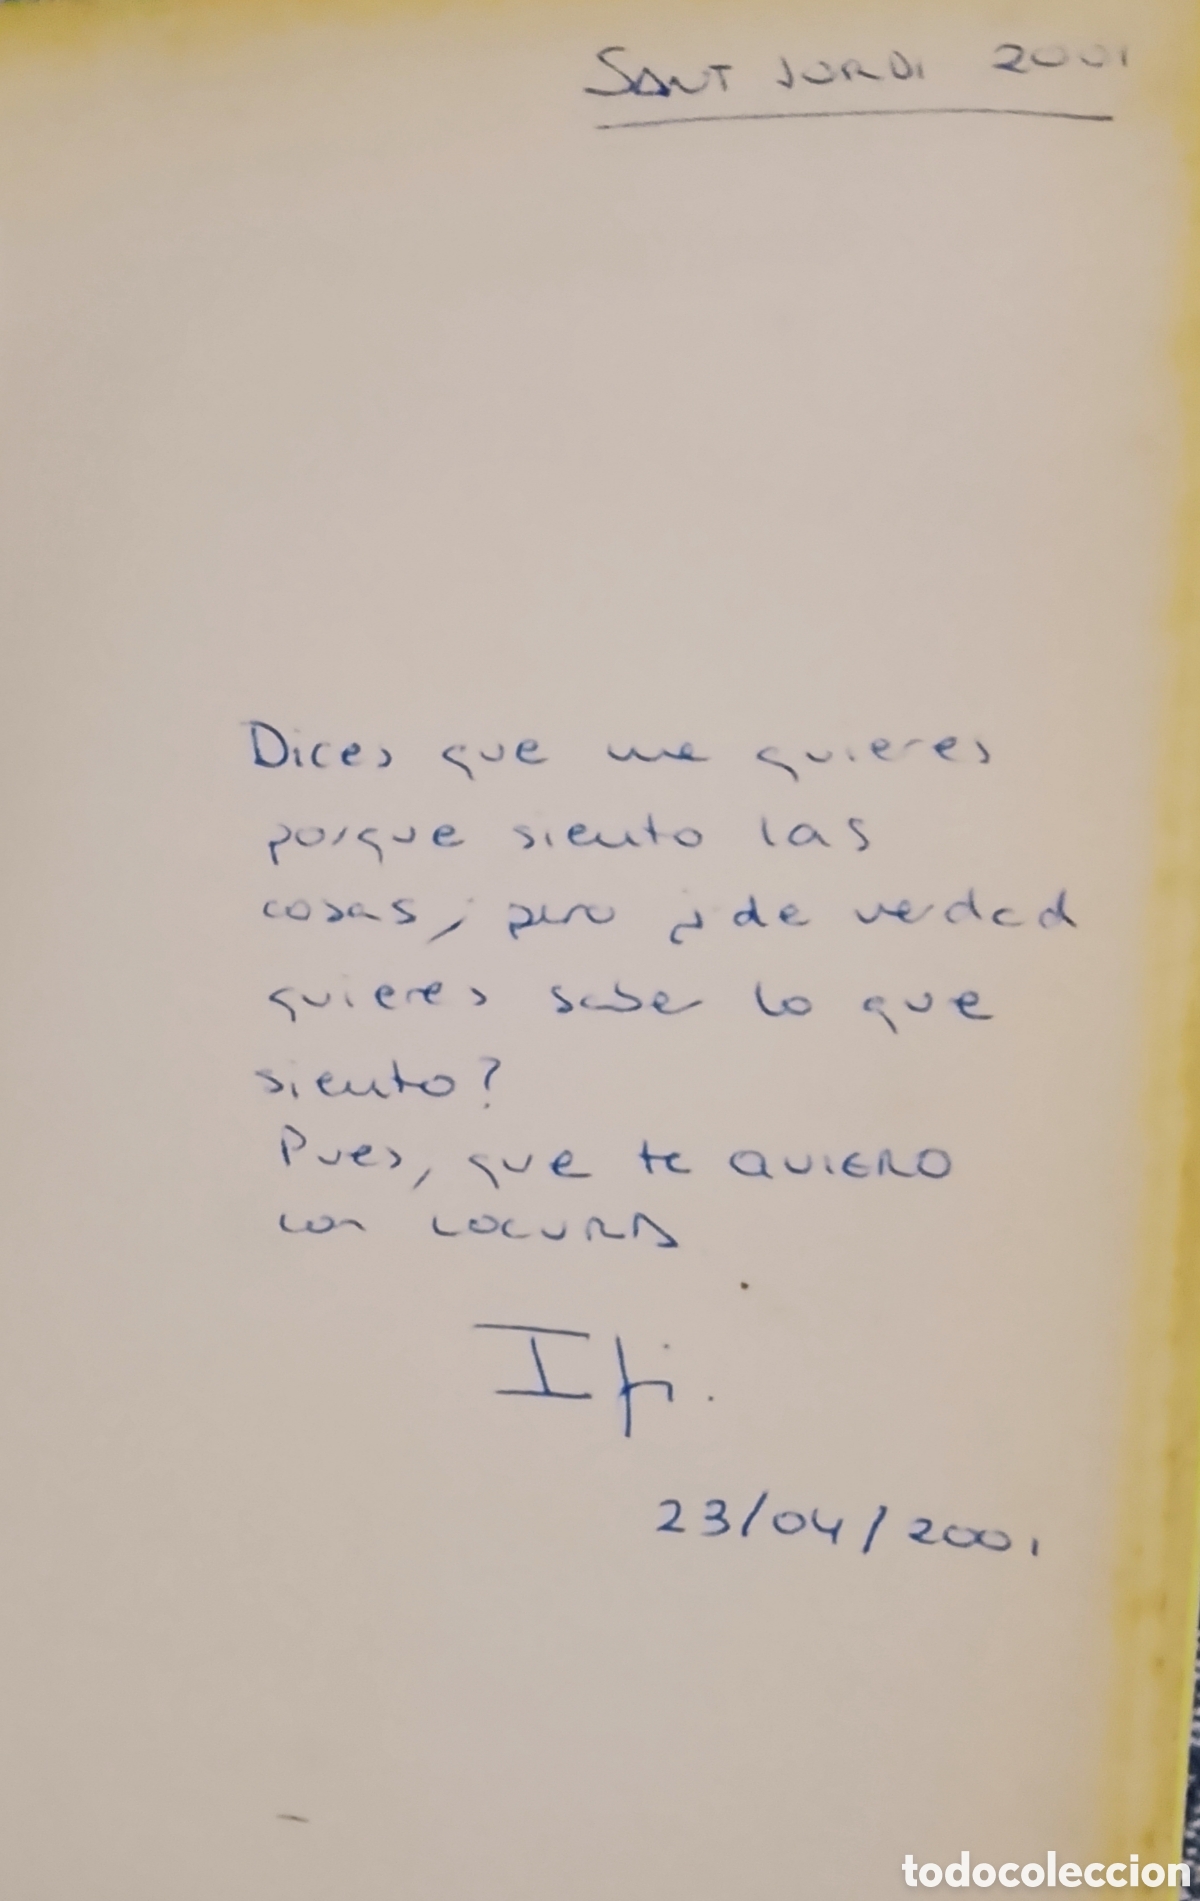 SANT JORDI 2001
Dices que me quieres
porque siento las
cosas, pero ¿de verdad
quieres saber lo que
siento?
Pues, que te QUIERO
con LOCURA
23/04/2001
todocoleccion